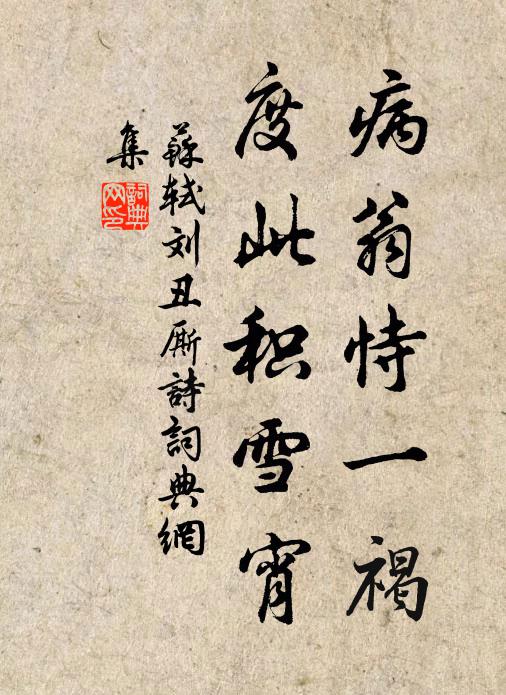 病翁恃一褐
度此积雪宵
蘇轼刘丑厮詩詞典網
集
詞典
网印